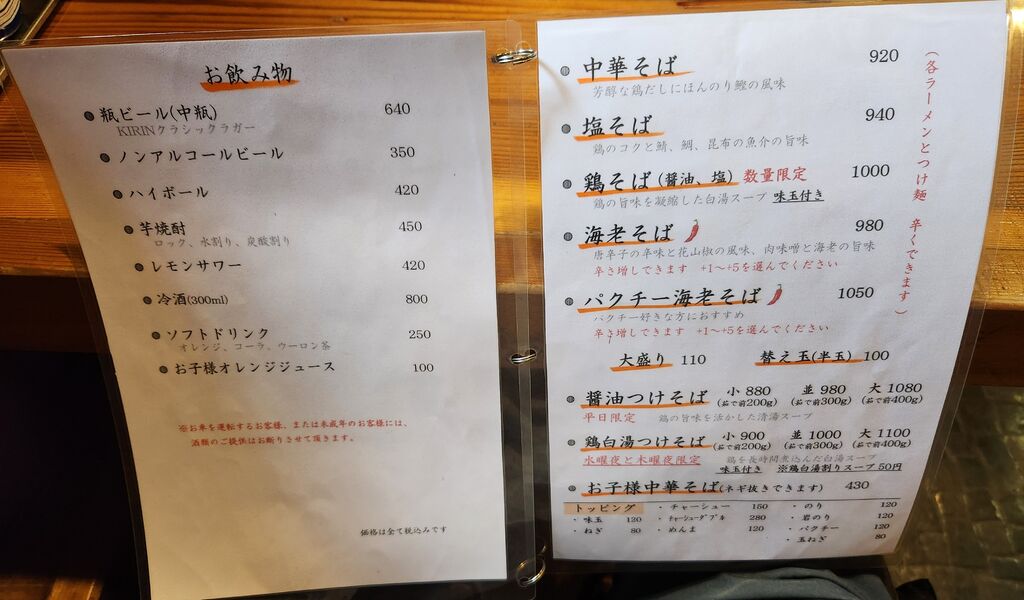 お飲み物
瓶ビール(中瓶) 640
KIRINクラシックラガー
ノンアルコールビール 350
ハイボール 420
芋焼酎 450
ロック、水割り、炭酸割り
レモンサワー 420
冷酒(300ml) 800
ソフトドリンク 250
オレンジ、コーラ、ウーロン茶
お子様オレンジジュース 100
※お車を運転するお客様、または未成年のお客様には、
酒類のご提供はお断りさせて頂きます。
価格は全て税込みです
中華そば 920
芳醇な鶏だしにほんのり鰹の風味
塩そば 940
鶏のコクと鯖、鯛、昆布の魚介の旨味
鶏そば(醤油、塩) 数量限定 1000
鶏の旨味を凝縮した白湯スープ 味玉付き
海老そば 980
唐辛子の辛味と花山椒の風味、肉味噌と海老の旨味
辛さ増しできます +1～+5を選んでください
パクチー海老そば 1050
パクチー好きな方におすすめ
辛さ増しできます +1～+5を選んでください
大盛り 110 替え玉(半玉) 100
醤油つけそば 小 880 並 980 大 1080
(茹で前200g) (茹で前300g) (茹で前400g)
平日限定 鶏の旨味を活かした清湯スープ
鶏白湯つけそば 小 900 並 1000 大 1100
(茹で前200g) (茹で前300g) (茹で前400g)
水曜夜と木曜夜限定 鶏を長時間煮込んだ白湯スープ
味玉付き ※鶏白湯割りスープ 50円
お子様中華そば(ネギ抜きできます) 430
トッピング
・味玉 120
・ねぎ 80
・チャーシュー 150
・チャーシューダブル 280
・めんま 120
・のり 120
・岩のり 120
・パクチー 120
・玉ねぎ 80
(各ラーメンとつけ麺 辛くできます)